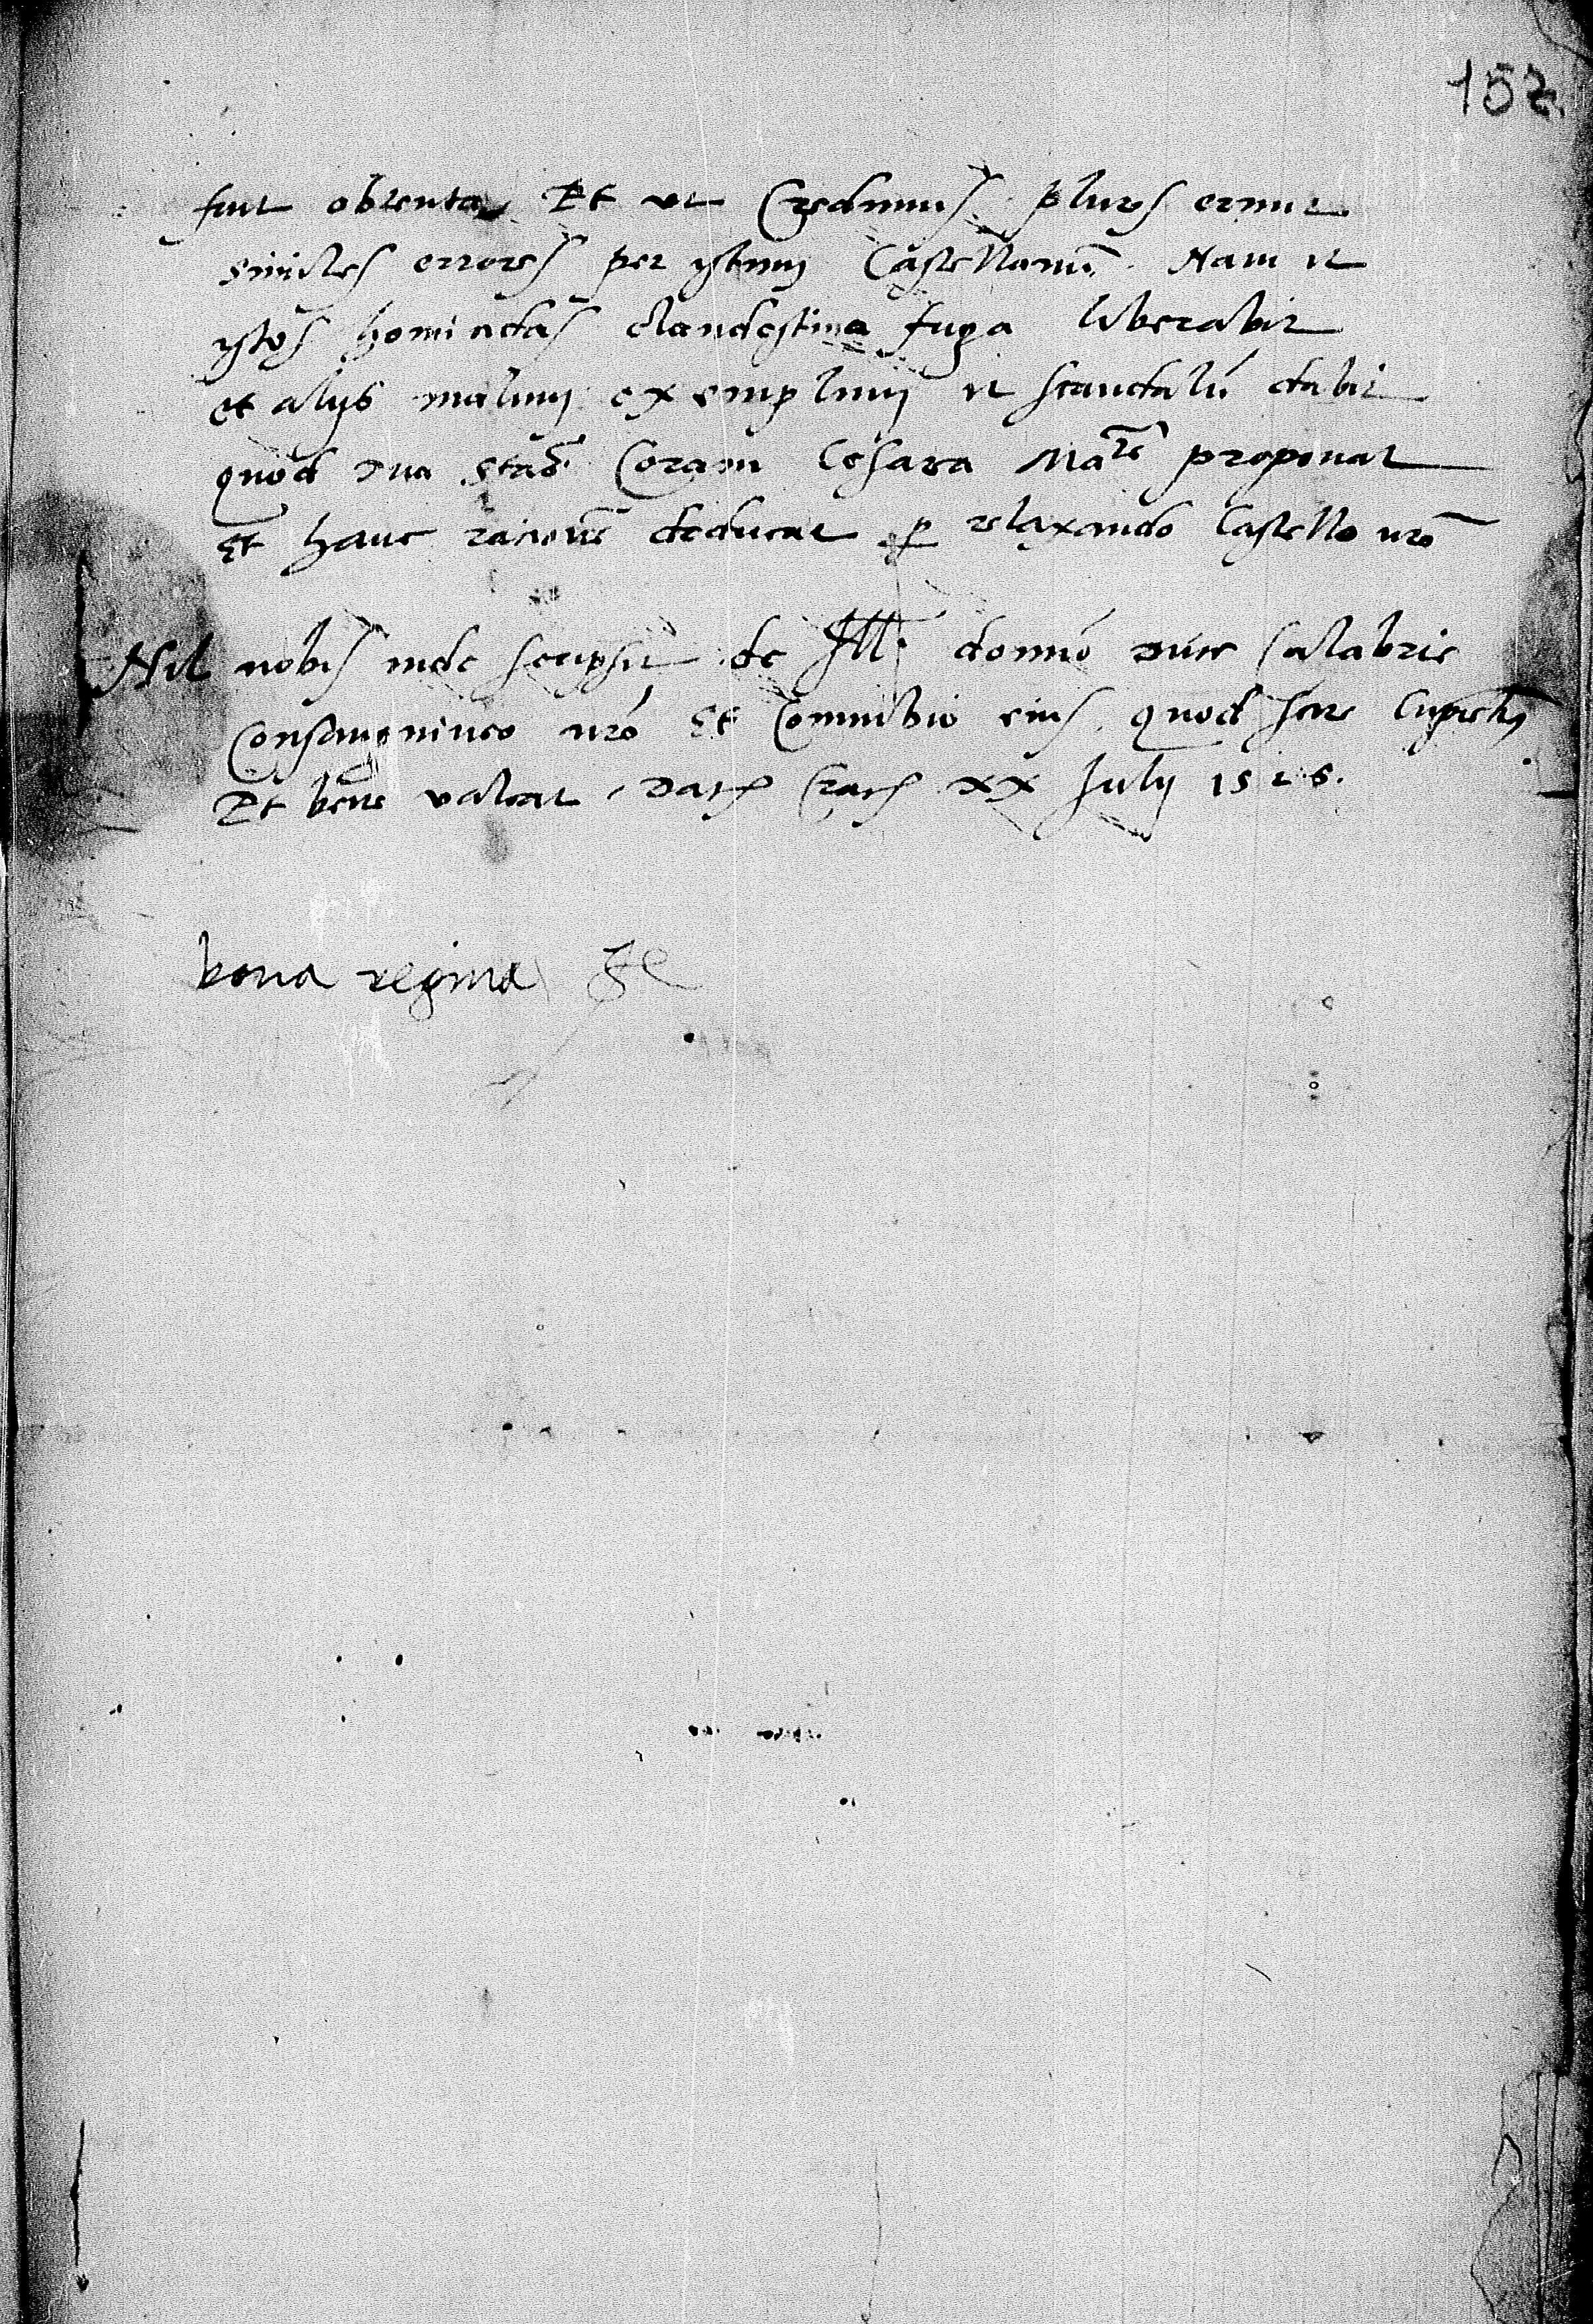 152
fuit obtenta Et ut Credimus plures erunt
similes errores per ystum Castellanũ. Nam ut
ystos homicidas clandestina fuga liberabit
et alijs malum exemplum et scandalũ dabit
quod d\u0303na Stas Coram Cesarea Mate proponat
Et hanc rationẽ deducat p relaxando Castello nr\u0303o
Nil nobis inde scripsit de Ill. domino duce Calabrie
Consanguineo nr\u0303o Et Connubio eius quod scire
Et bene valeat. Dat Crac XX Julij 1526.
bona regina